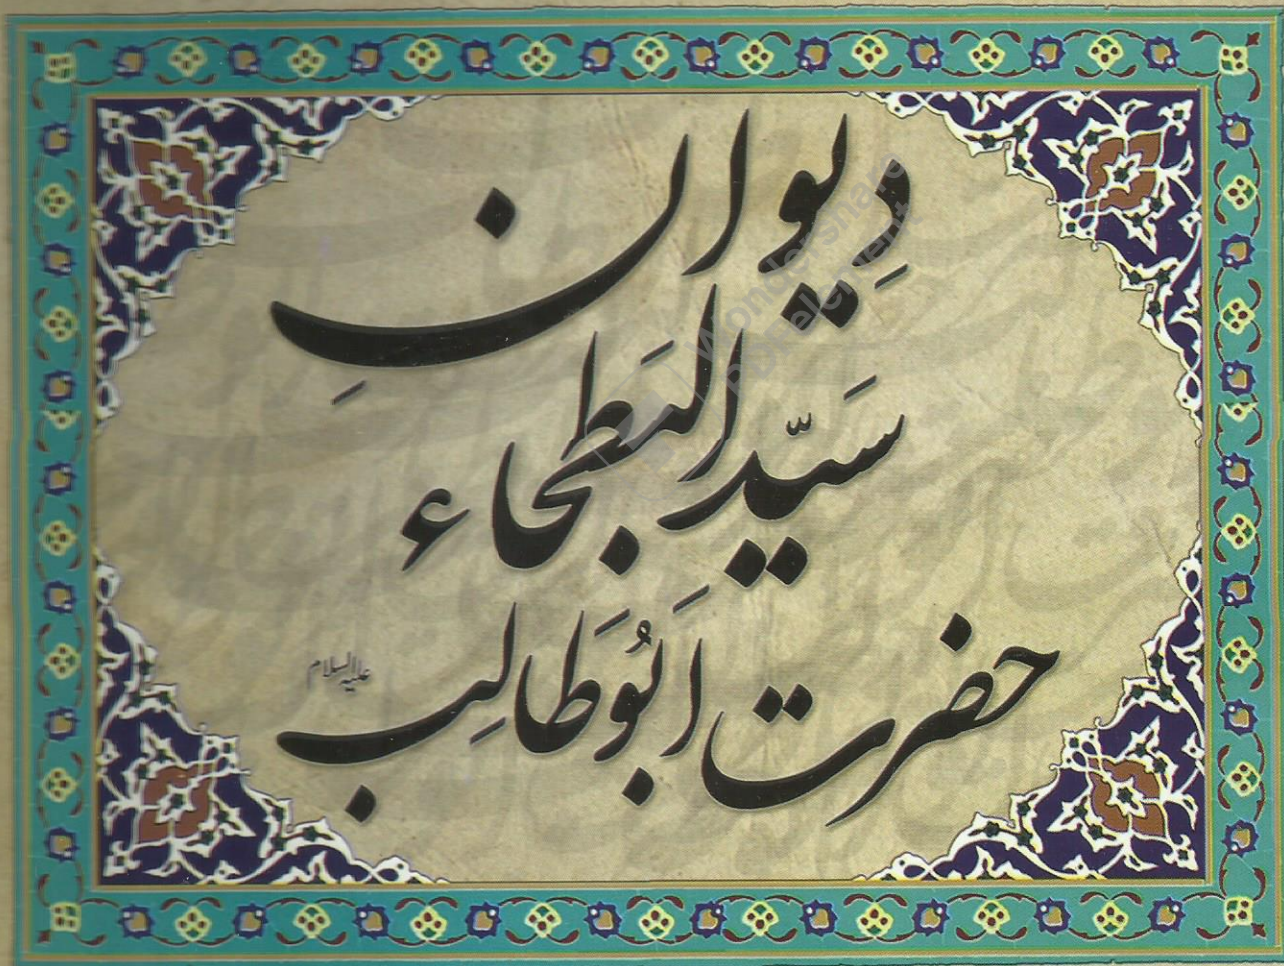 دِیوانِ
سَیّد البَطحاء
حضرت اَبُوطَالِب علیه‌السلام
Wondershare
PDFelement